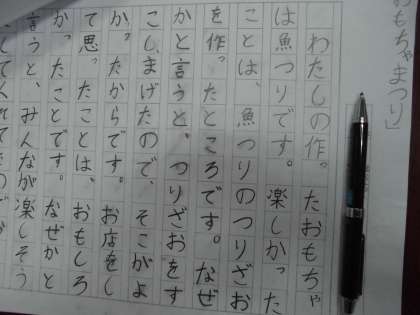 おもちゃまつり」
わたしの作ったおもちゃ
は魚つりです。楽しかった
ことは、魚つりのつりざお
を作ったところです。なぜ
かと言うと、つりざおをす
こしまげたので、そこがよ
かったからです。お店をし
て思ったことは、おもしろ
かったことです。なぜかと
言うと、みんなが楽しそう
してくれて